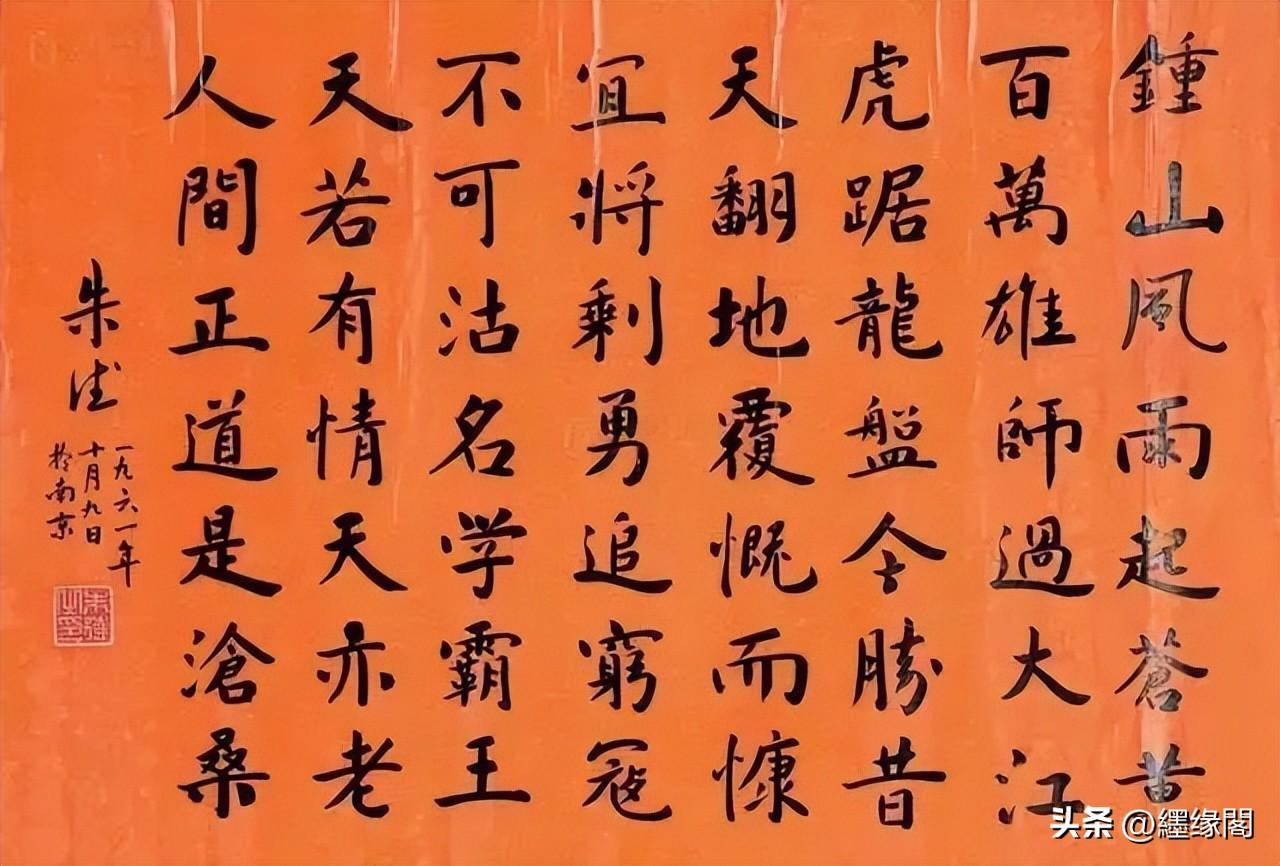 鍾山风雨起蒼黄
百萬雄師過大江
虎踞龍盤今勝昔
天翻地覆慨而慷
宜将剩勇追窮寇
不可沽名学霸王
天若有情天亦老
人間正道是滄桑
朱德
一九六一年
十月九日
於南京
朱德之印
头条 @纆缘閣